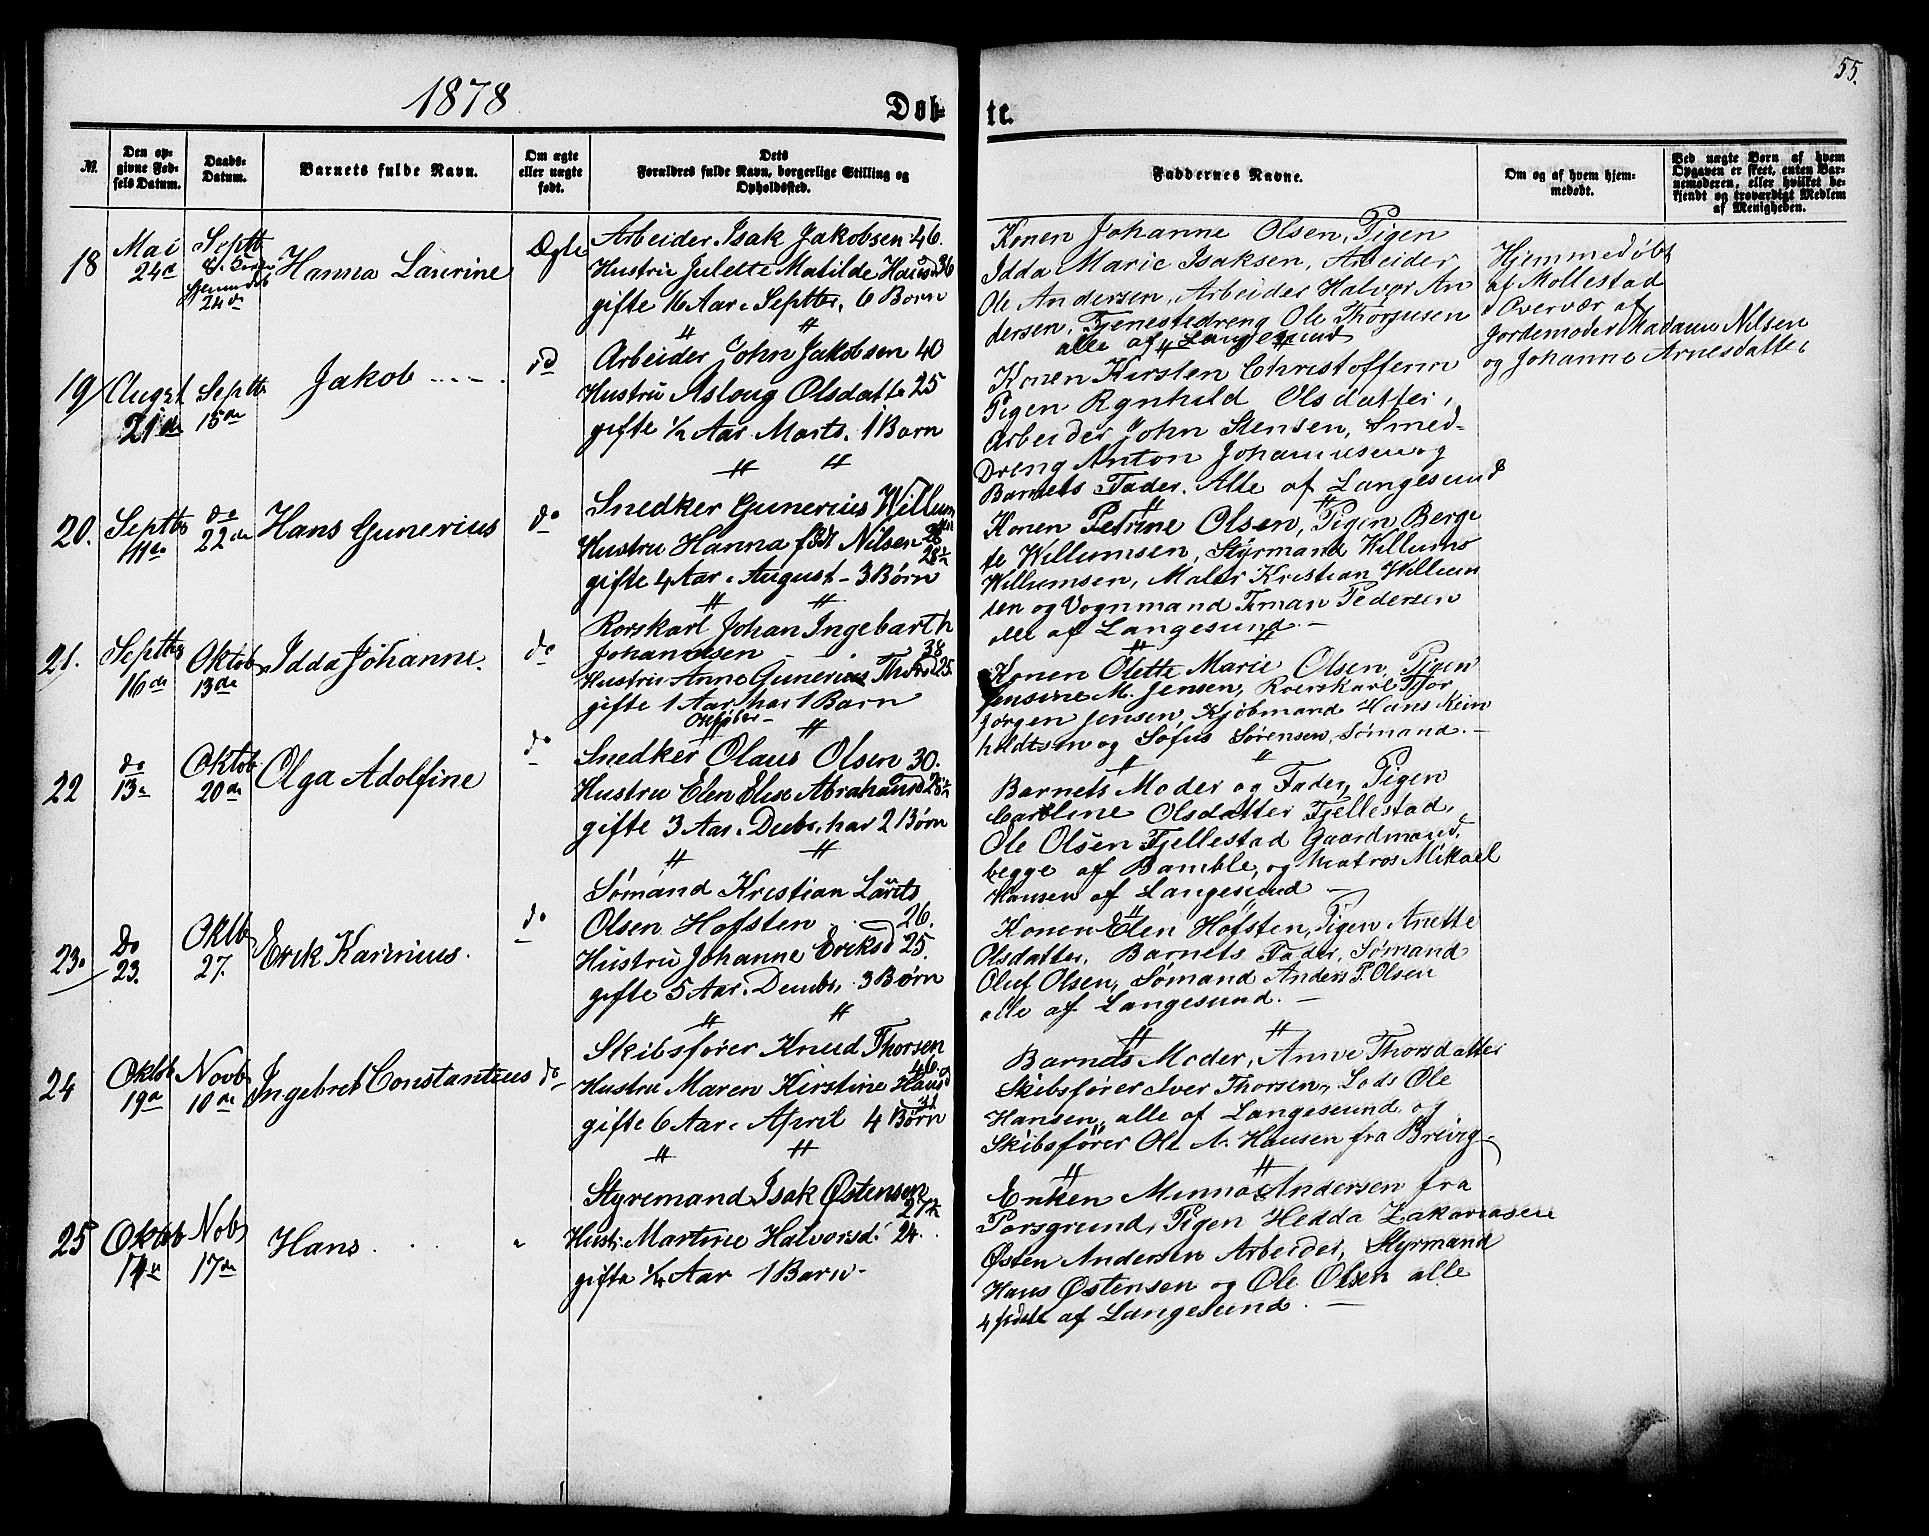 1878
Døb-
te.
55.
№
Den op-
givne Fød-
sels Datum.
Daabs-
Datum.
Barnets fulde Navn.
Om ægte
eller uægte
født.
Dets
Forældres fulde Navn, borgerlige Stilling og
Opholdssted.
Faddernes Navne.
Om og af hvem hjem-
medøbt.
Ved uægte Børn af hvem
Opgaven er skeet, enten Bar-
nemoderen, eller hvilket be-
kjendt og troværdigt Medlem
af Menigheden.
18
Mai
24de
Septb
24de
Hanna Laurine
Ægte
Arbeider Isak Jakobsen 46.
Hustru Julette Matilde Hansd 36
gifte 16 Aar i Septbr, 6 Børn
Konen Johanne Olsen, Pigen
Idda Marie Isaksen, Arbeider
Ole Andersen, Arbeider Halvor An
dersen, Tjenestedreng Ole Thorjusen
alle af Langesund
Hjemmedøbt
af Mollestad
i Overvær af
Jordemoder Madame Nilsen
og Johanne Arnesdatter
19
August
21de
Septb
15de
Jakob
do
Arbeider John Jakobsen 40
Hustru Asloug Olsdatter 25
gifte ½ Aar Marts. 1 Barn
Konen Kirsten Christoffersen
Pigen Rgnhild Olsdatter,
Arbeider John Stensen, Smed-
Dreng Anton Johannesen og
Barnets Fader. Alle af Langesund
20.
Septbr
11te
do
22de
Hans Gunerius
do
Snedker Gunerius Willum
sen 28
Hustru Hanna født Nilsen 28½
gifte 4 Aar i August - 3 Børn
Konen Petrine Olsen, Pigen Berge
te Willumsen, Styrmand Willums
Willumsen, Maler Kristian Willum
sen og Vognmand Timan Pedersen
alle af Langesund. -
21.
Septbr
16de
Oktob
13de
Idda Johanne.
do
Rorskarl Johan Ingebarth
Johannesen - - 38
Hustru Anne Gunerius Thorsd 25.
gifte 1 Aar har 1 Barn
Oktober -
Konen Olette Marie Olsen, Pigen
Jensine M. Jensen, Rorskarl Thor
Jørgen Jensen, Kjøbmand Hans Rein
holdtsen og Sofus Sørensen, Sømand. -
22
do
13de
Oktob
20de
Olga Adolfine
do
Snedker Olaus Olsen 30.
Hustru Elen Elise Abrahamsd 25½
gifte 3 Aar i Decbr, har 2 Børn
Barnets Moder og Fader, Pigen
Caroline Olsdatter Fjellestad,
Ole Olsen Fjellestad Gaardmand,
begge af Bamble, og Matros Mikael
Hansen af Langesund -
23.
Do
23.
Oktb
27.
Erik Karinius.
do
Sømand Kristian Laurits
Olsen Hofsten 26.
Hustru Johanne Eriksd 25.
gifte 5 Aar i Decmbr, 3 Børn
Konen Elen Hofsten, Pigen Anette
Olsdatter, Barnets Fader, Sømand
Oluf Olsen, Sømand Anders P. Olsen
alle af Langesund. -
24
Oktob
19de
Novb
10de
Ingebret Constantius
do
Skibsfører Knud Thorsen
46.
Hustru Maren Kirstine Hansd
gifte 6 Aar i April 4 Børn
Barnets Moder, Anne Thorsdatter
Skibsfører Iver Thorsen, Lods Ole
Hansen, alle af Langesund, og
Skibsfører Ole N. Hansen fra Brevig -
25
Oktob
Nob
17de
Hans
"
Styremand Isak Østensen
27½
Hustr. Martine Halvorsd. 24.
gifte ¼ Aar 1 Barn -
Enken Minna Andersen fra
Porsgrund, Pigen Hedda Zakariasen
Østen Andersen Arbeider, Styrmand
Hans Østensen og Ole Olsen alle
4 sidste af Langesund. -